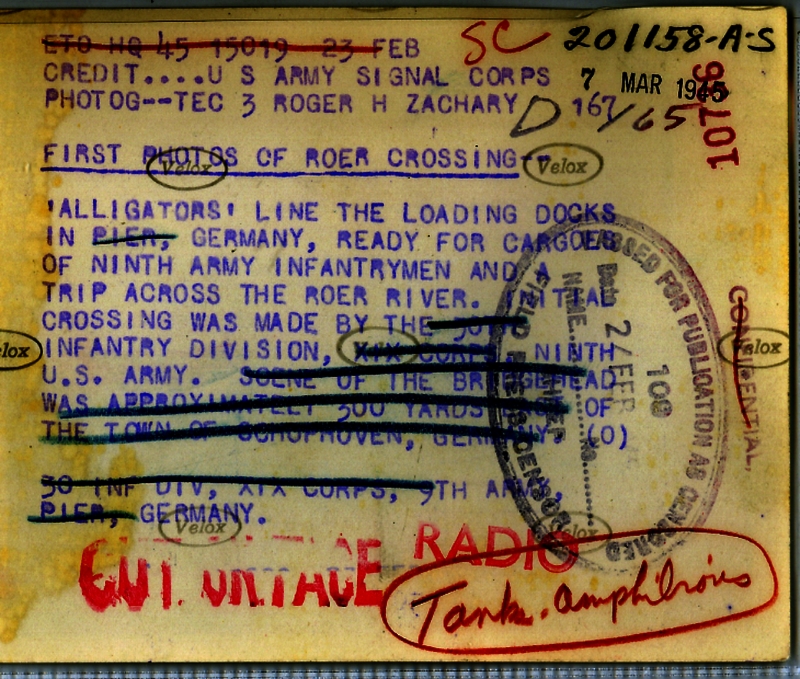 ETO HQ 45 15019 23 FEB
SC 201158-A-S
CREDIT....U S ARMY SIGNAL CORPS
7 MAR 1945
PHOTOG--TEC 3 ROGER H ZACHARY
D 167/65
10776
FIRST PHOTOS OF ROER CROSSING--
Velox
Velox
'ALLIGATORS' LINE THE LOADING DOCKS
IN PIER, GERMANY, READY FOR CARGOES
OF NINTH ARMY INFANTRYMEN AND A
TRIP ACROSS THE ROER RIVER. INITIAL
CROSSING WAS MADE BY THE 30TH
INFANTRY DIVISION, XIX CORPS, NINTH
U.S. ARMY. SCENE OF THE BRIDGEHEAD
WAS APPROXIMATELY 300 YARDS OF
THE TOWN OF SCHOPHOVEN, GERMANY. (O)
30 INF DIV, XIX CORPS, 9TH ARMY,
PIER, GERMANY.
Velox
Velox
Velox
PASSED FOR PUBLICATION AS CENSORED
FIELD PRESS CENSOR
Date 24 FEB
NAME
No.
100
CONFIDENTIAL
RADIO
Tank. amphibious